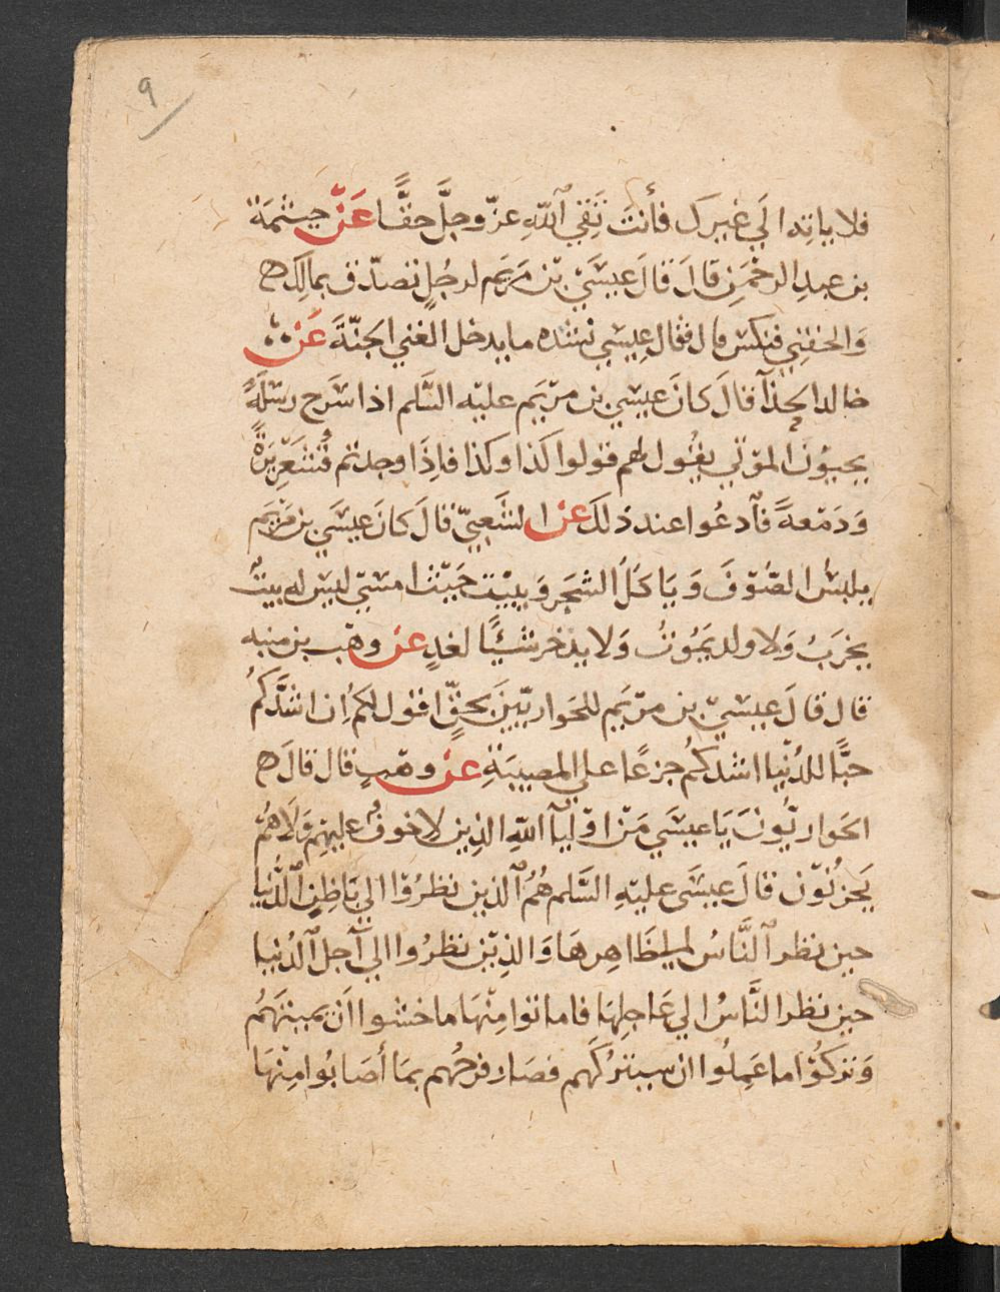 ٩
فلا ياتِه الَي غيرك فأنتَ تَقِي ٱللّهِ عزّ وجلَّ حقًّا عَنْ خيثمَة
بن عبدِ الرحْمَنِ قالَ قالَ عِيسَي بن مَريَم لرجُلٍ تصدّق بمالِكَ ه
وَالحقنِي فنكسَ قال فقال عِيسَي بشدهٍ ما يدخل الغني الجنّةَ عَن
خالد الحذآ قالَ كانَ عيسَي بن مرْيَم عليْه السَّلم اذا سَرَح رسلَهُ
يحيوُن الموْتي يقُول لهم قولوا كَذا وكذا فاِذَا وجدتم قُشَعْرِيرَةً
وَدَمْعةً فآدعُوا عند ذلكَ عن الشَعبيّ قالَ كانَ عِيسَي بن مَرْيَم
يلبسُ الصُوفَ وَيَاكلُ الشجَر وَيبيْت حَيْث امسَي ليْس له بيتٌ
يخرَبُ وَلا ولد يَمُوتُ وَلا يدخر شيْئًا لغدٍ عن وهْب بن منبه
قال قالَ عيسَيْ بن مرْيَم للحَواريّينَ بحقٍّ اقول لكم اِن اشدَّكُم
حبًّا للدُنْيا اشدكُم جزعًا علي المصيبَةِ عنْ وهْبٍ قال قالَ ه
الحَواريُّونَ يَا عيسَي مَنْ اوْليآ اللهِ الذِين لا خوفٌ عليهِم وَلَا هُم
يَحزنُوْن قالَ عيسَى عليْهِ السَّلم هُمُ ٱلذين نظرُوْا الي بَاطِنِ ٱلدُّنْيا
حين نظر ٱلنَّاسُ الي ظَاهِرهَا وَالذِيْن نظرُوا الي آجل ٱلدُنيا
حين نظر النَّاسُ الي عَاجِلهَا فاماتوا مِنْهَا ما خشوا اَن يميتَهُم
وَتركوُا ما عَمِلُوا ان سيتركَهم فصَار فرحُهم بمَا أصَابُوا مِنْهَا